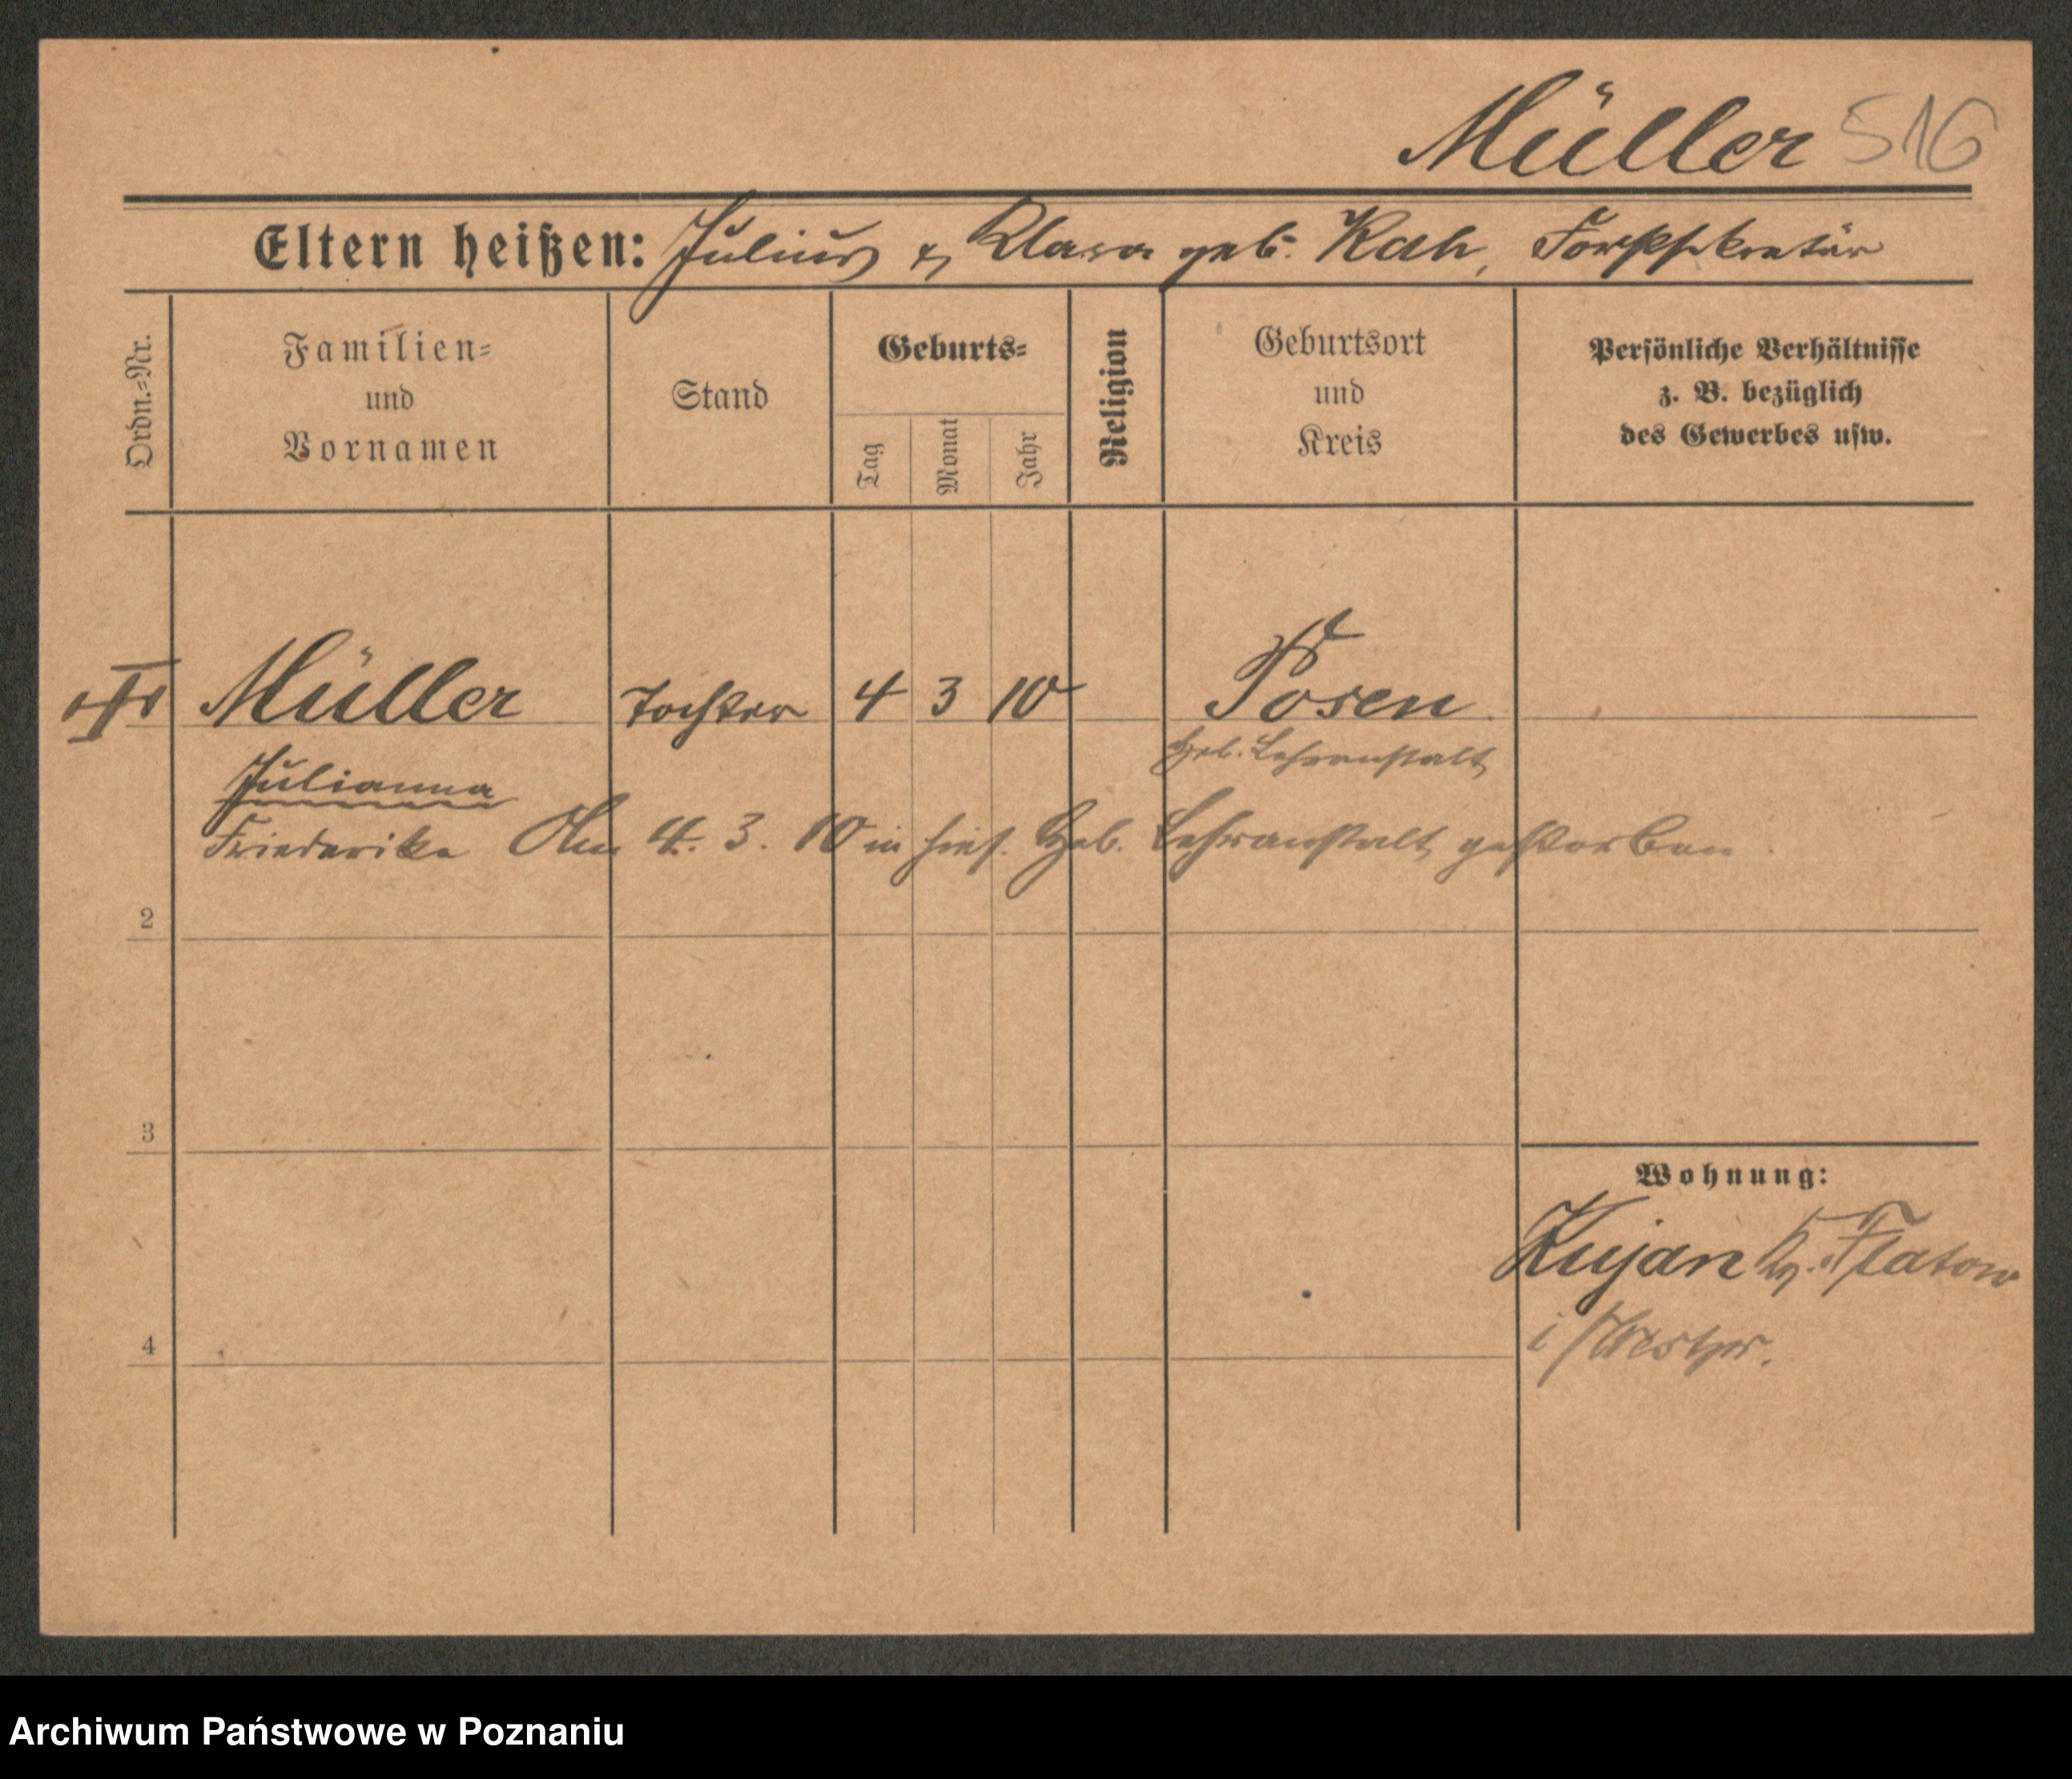 Müller 516
Eltern heißen: Julius & Klara geb. Rah, Forstsekretär
Ordn.-Nr.
Familien-
und
Vornamen
Stand
Geburts-
Tag
Monat
Jahr
Religion
Geburtsort
und
Kreis
Persönliche Verhältnisse
z. B. bezüglich
des Gewerbes usw.
Müller Tochter 4 3 10 Posen
Heb. Lehranstalt
Julianna
Friederike Am 4. 3. 10 in hies. Heb. Lehranstalt gestorben.
2
3
Wohnung:
Kujan Kr. Flatow
i/Westpr.
4
Archiwum Państwowe w Poznaniu